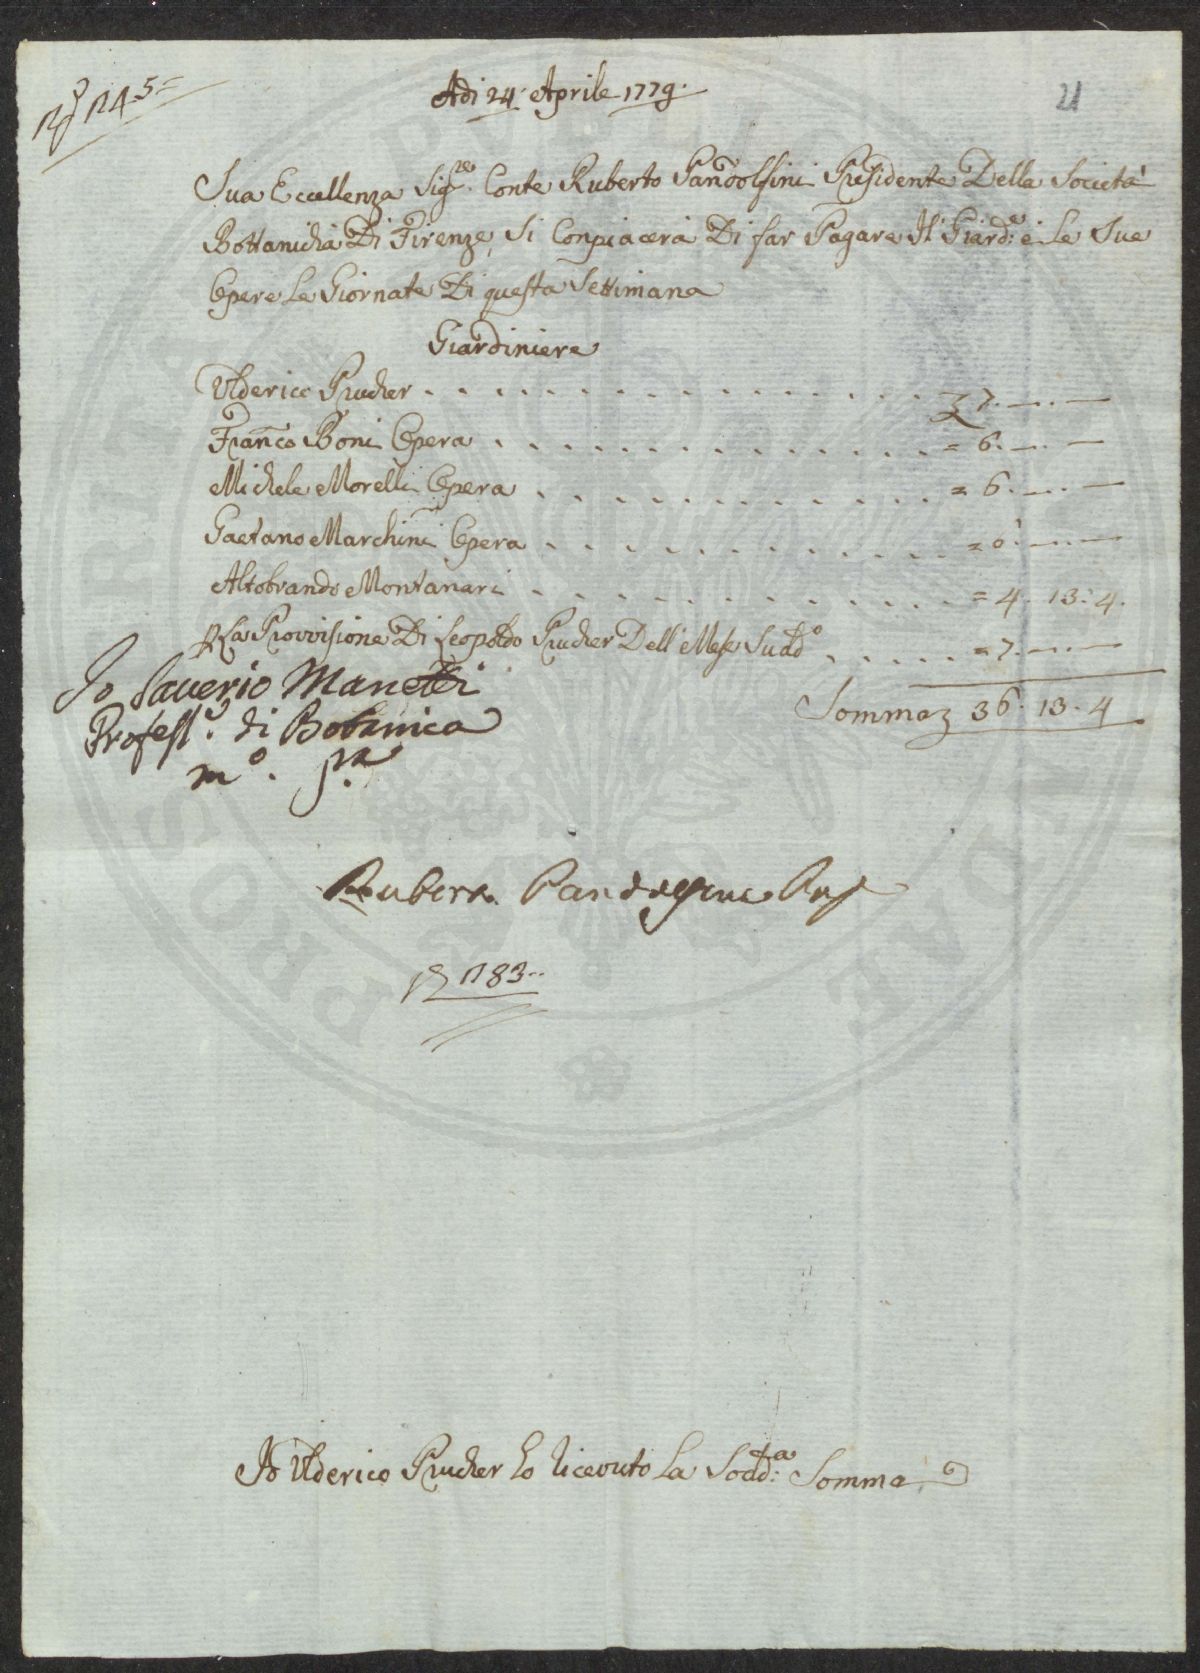 Adi 24. Aprile 1779.
21
Sua Eccellenza Sig.re Conte Ruberto Pandolfini Presidente Della Società
Bottanicha Di Firenze, Si Conpiacerà Di far Pagare Il Giard.e e Le Sue
Opere Le Giornate Di questa Settimana
Giardiniere
Ulderico Prucher . . . . . . . . . . . . 7. —. —
Franco Boni Opera . . . . . . . . . . . . = 6. —. —
Michele Morelli Opera . . . . . . . . . . . . = 6. —. —
Gaetano Marchini Opera . . . . . . . . . . . . = 6. —. —
Altobrando Montanari . . . . . . . . . . . . = 4. 13. 4.
P La Provvisione Di Leopoldo Prucher Dell Mese Sudd.o . . . . . . = 7. —. —
Somma 36. 13. 4
Io Saverio Manetti
Profess.e di Botanica
m.o p.a
Rubero. Pandolfini Pres
1783..
Io Ulderico Prucher ho riceouto La Sodd.a Somma